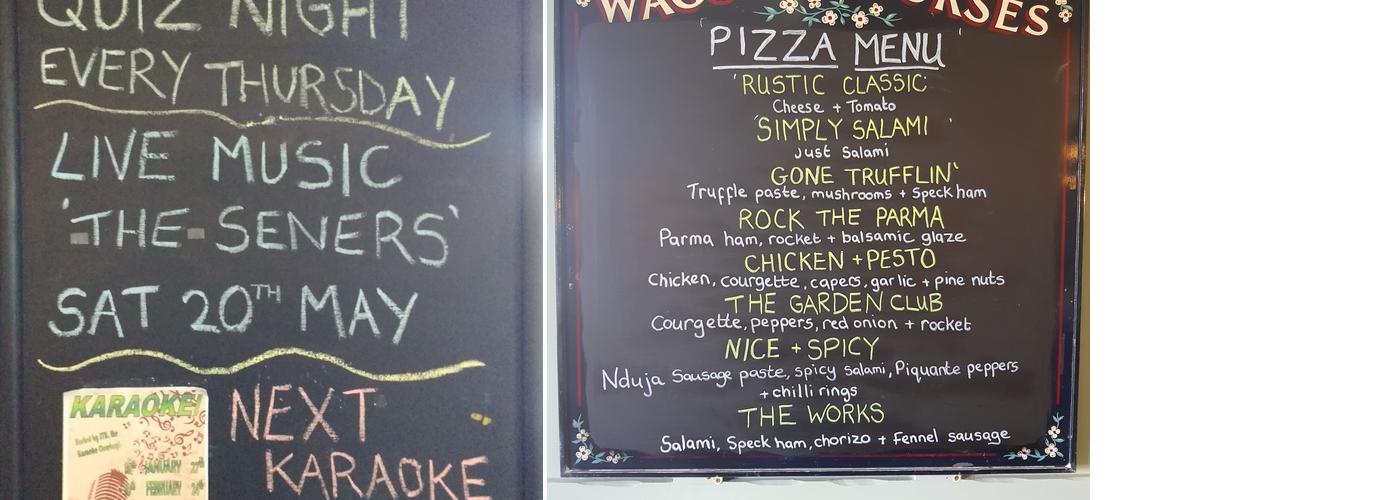 QUIZ NIGHT
EVERY THURSDAY
LIVE MUSIC
'THE SENERS'
SAT 20TH MAY
KARAOKE!
JANUARY 27th
FEBRUARY
NEXT
KARAOKE
PIZZA MENU
'RUSTIC CLASSIC'
Cheese + Tomato
'SIMPLY SALAMI'
Just Salami
'GONE TRUFFLIN'
Truffle paste, mushrooms + Speck ham
ROCK THE PARMA
Parma ham, rocket + balsamic glaze
CHICKEN + PESTO
Chicken, courgette, capers, garlic + pine nuts
THE GARDEN CLUB
Courgette, peppers, red onion + rocket
NICE + SPICY
Nduja Sausage paste, spicy salami, Piquante peppers
+ chilli rings
THE WORKS
Salami, Speck ham, chorizo + Fennel sausage